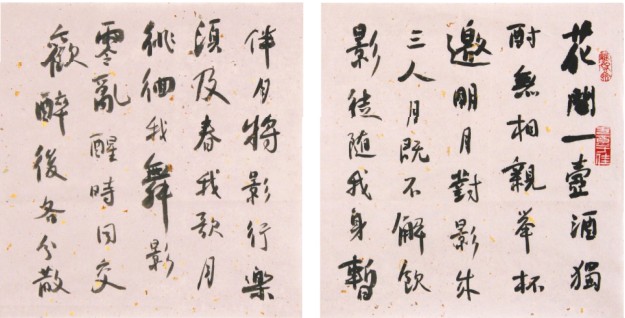 花間一壺酒獨
酌無相親舉杯
邀明月對影成
三人月既不解飲
影徒隨我身暫
伴月將影行樂
須及春我歌月
徘徊我舞影
零亂醒時同交
歡醉後各分散